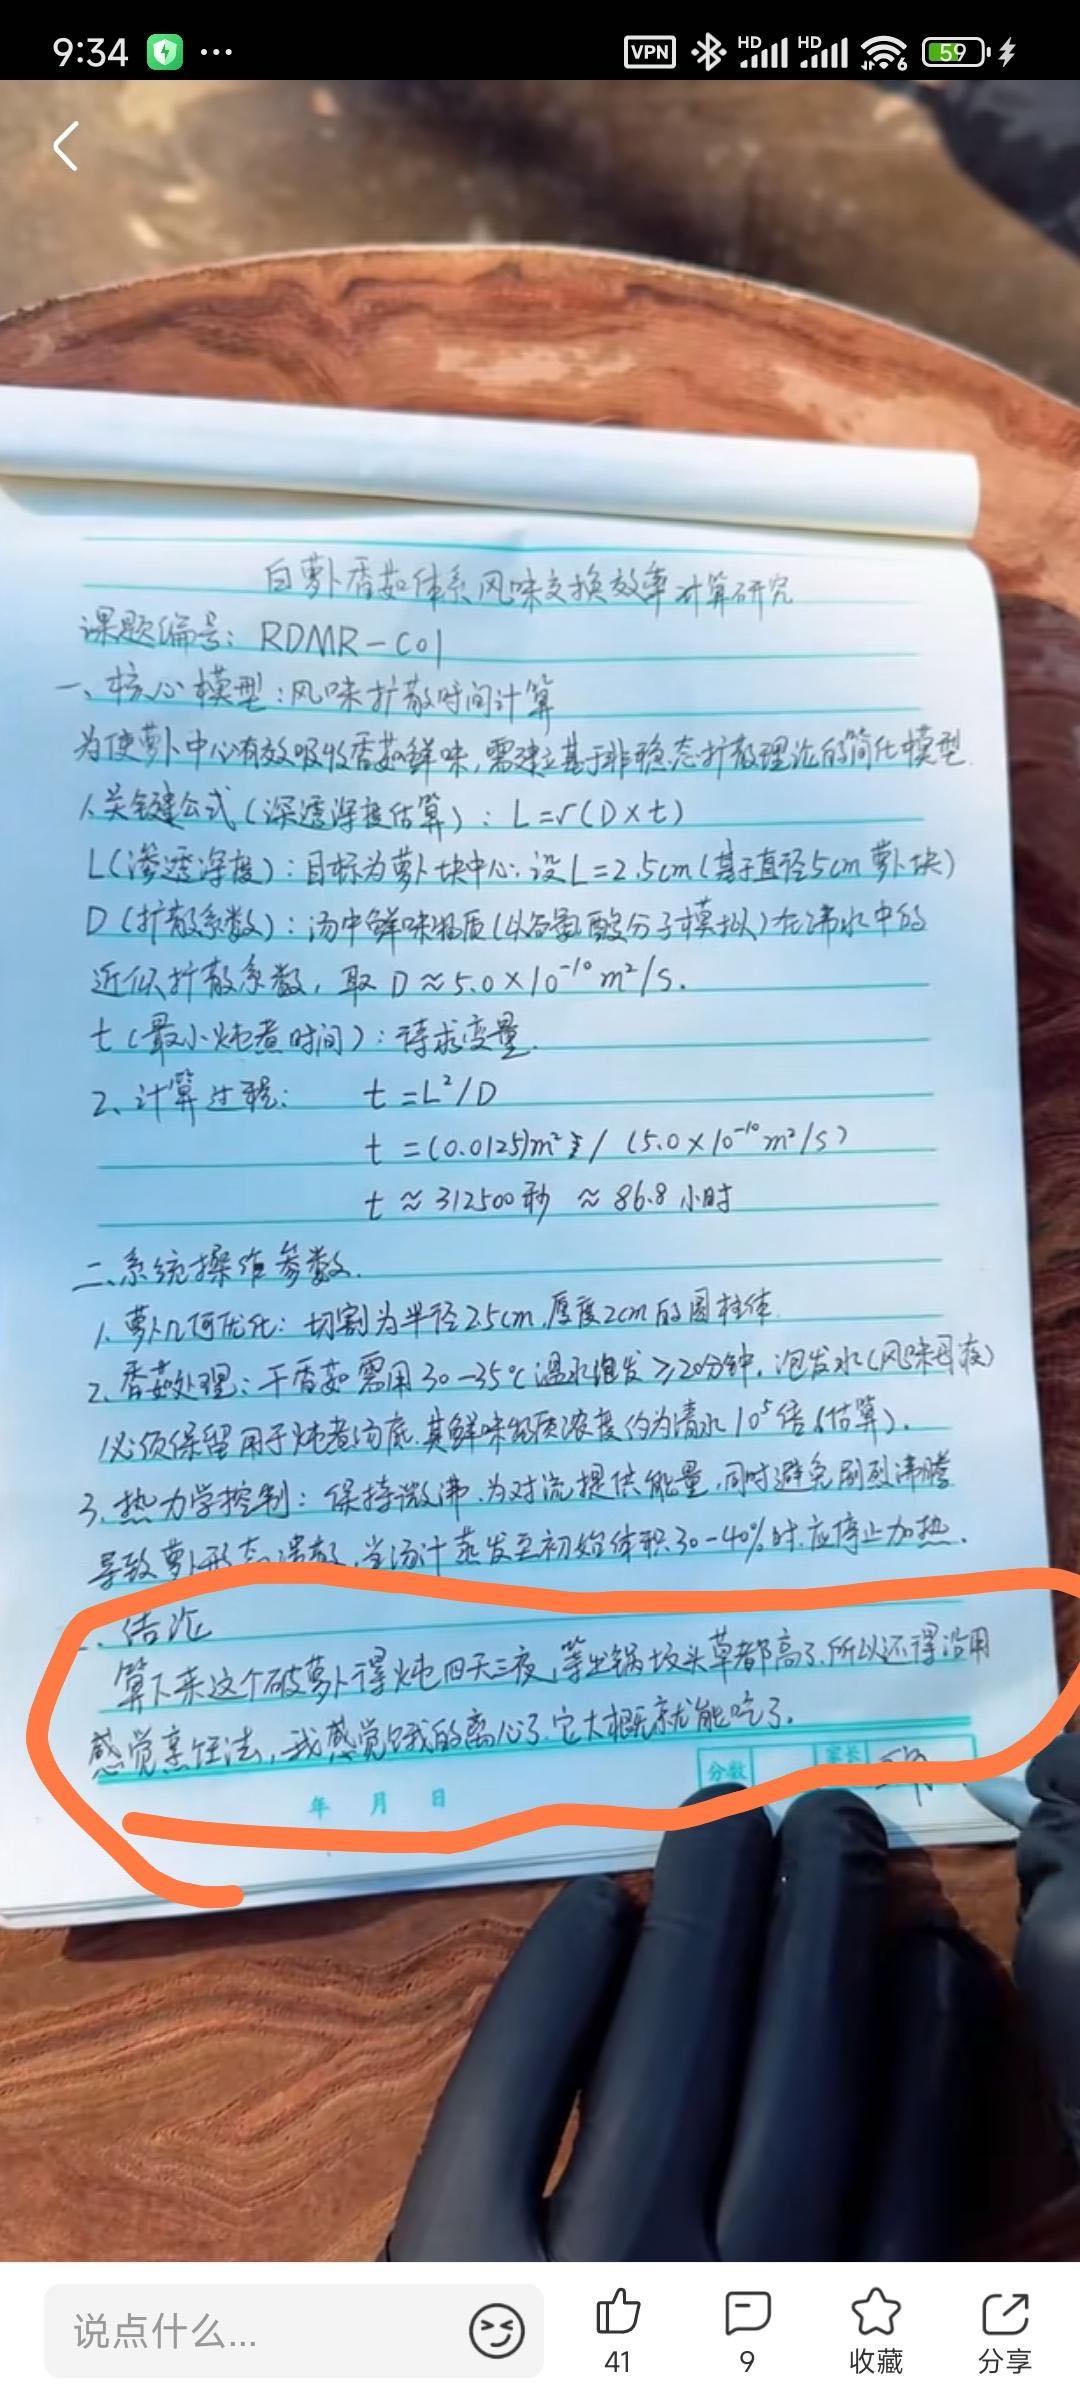 9:34
VPN
HD
HD
6
59
白萝卜香菇体系风味交换效率计算研究
课题编号：RDMR-C01
一、核心模型：风味扩散时间计算
为使萝卜中心有效吸收香菇鲜味，需建立基于非稳态扩散理论的简化模型.
1.关键公式（深透深度估算）：L=√(D×t)
L（渗透深度）：目标为萝卜块中心：设L=2.5cm（基于直径5cm萝卜块）
D（扩散系数）：汤中鲜味物质（以谷氨酸分子模拟）在沸水中的
近似扩散系数，取D≈5.0×10⁻¹⁰m²/s.
t（最小炖煮时间）：待求变量.
2、计算过程： t=L²/D
t=(0.0125)m² / (5.0×10⁻¹⁰m²/s)
t≈312500秒 ≈86.8小时
二、系统操作参数.
1.萝卜几何优化：切割为半径2.5cm，厚度2cm的圆柱体.
2.香菇处理：干香菇需用30-35℃温水泡发≥20分钟，泡发水（风味母液）
必须保留用于炖煮汤底，其鲜味物质浓度约为清水10⁵倍（估算）.
3.热力学控制：保持微沸，为对流提供能量，同时避免剧烈沸腾
导致萝卜形态溃散，当汤汁蒸发至初始体积30-40%时应停止加热.
、结论
算下来这个破萝卜得炖四天三夜，等出锅坟头草都高了，所以还得沿用
感觉烹饪法，我感觉饿的离心了，它大概就能吃了.
年 月 日
分数
家长
说点什么...
41
9
收藏
分享